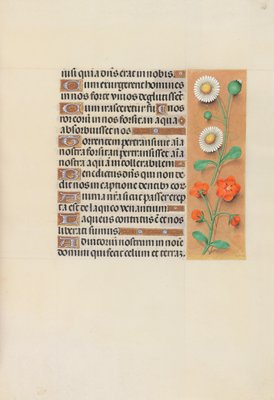 nisi quia dns erat in nobis.
Cum exurgerent homines
in nos forte vivos deglutisset
Cum irasceretur furor
eorum in nos forsitan aqua
absorbuisset nos
Torrentem pertransivit aia
nostra forsitan pertransisset aia
nostra aquam intollerabilem
Benedictus dns qui non de
dit nos in captione dentibus eorum
Anima nra sicut passer erep
ta est de laqueo venantium
Laqueus contritus e et nos
liberati sumus
Adiutorium nostrum in noie
domini qui fecit celum et terram.